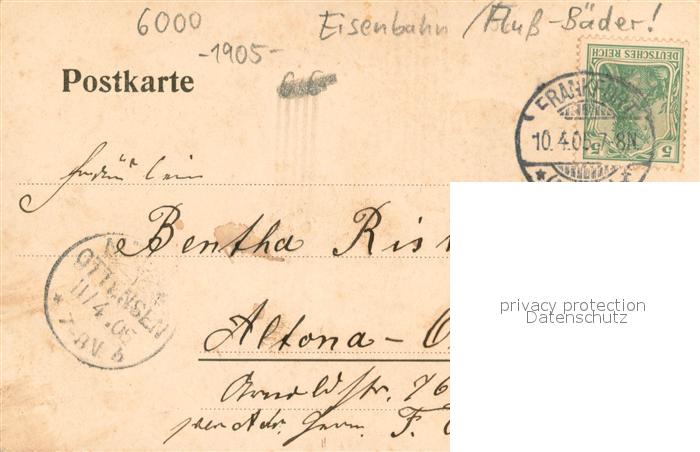 6000
Eisenbahn / Fluß-Bäder!
-1905-
Postkarte
DEUTSCHES REICH
5 5
FRANKFURT
10.4.05.7-8N.
Bertha Ris
OTTENSEN
11/4.05
7-8V.
Altona-O
Arnoldstr. 76
per Adr. Herrn F.
privacy protection
Datenschutz